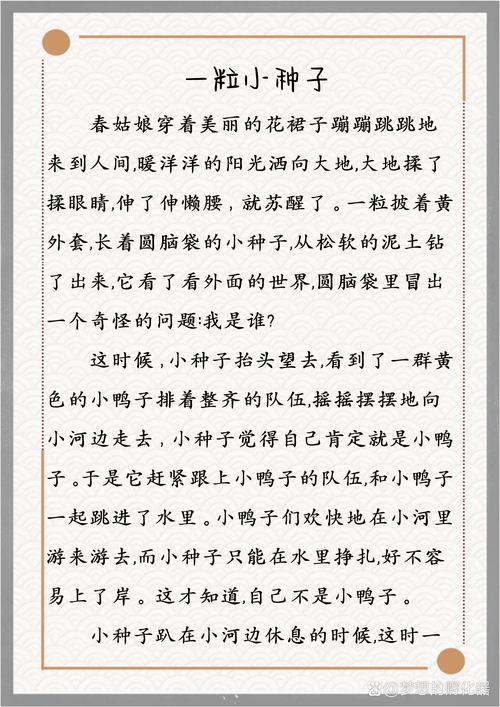 一粒小种子
春姑娘穿着美丽的花裙子蹦蹦跳跳地
来到人间,暖洋洋的阳光洒向大地,大地揉了
揉眼睛,伸了伸懒腰，就苏醒了。一粒披着黄
外套,长着圆脑袋的小种子,从松软的泥土钻
了出来,它看了看外面的世界,圆脑袋里冒出
一个奇怪的问题:我是谁?
这时候，小种子抬头望去,看到了一群黄
色的小鸭子排着整齐的队伍,摇摇摆摆地向
小河边走去，小种子觉得自己肯定就是小鸭
子。于是它赶紧跟上小鸭子的队伍,和小鸭子
一起跳进了水里。小鸭子们欢快地在小河里
游来游去,而小种子只能在水里挣扎,好不容
易上了岸。这才知道,自己不是小鸭子。
小种子趴在小河边休息的时候,这时一
@梦想的孵化器